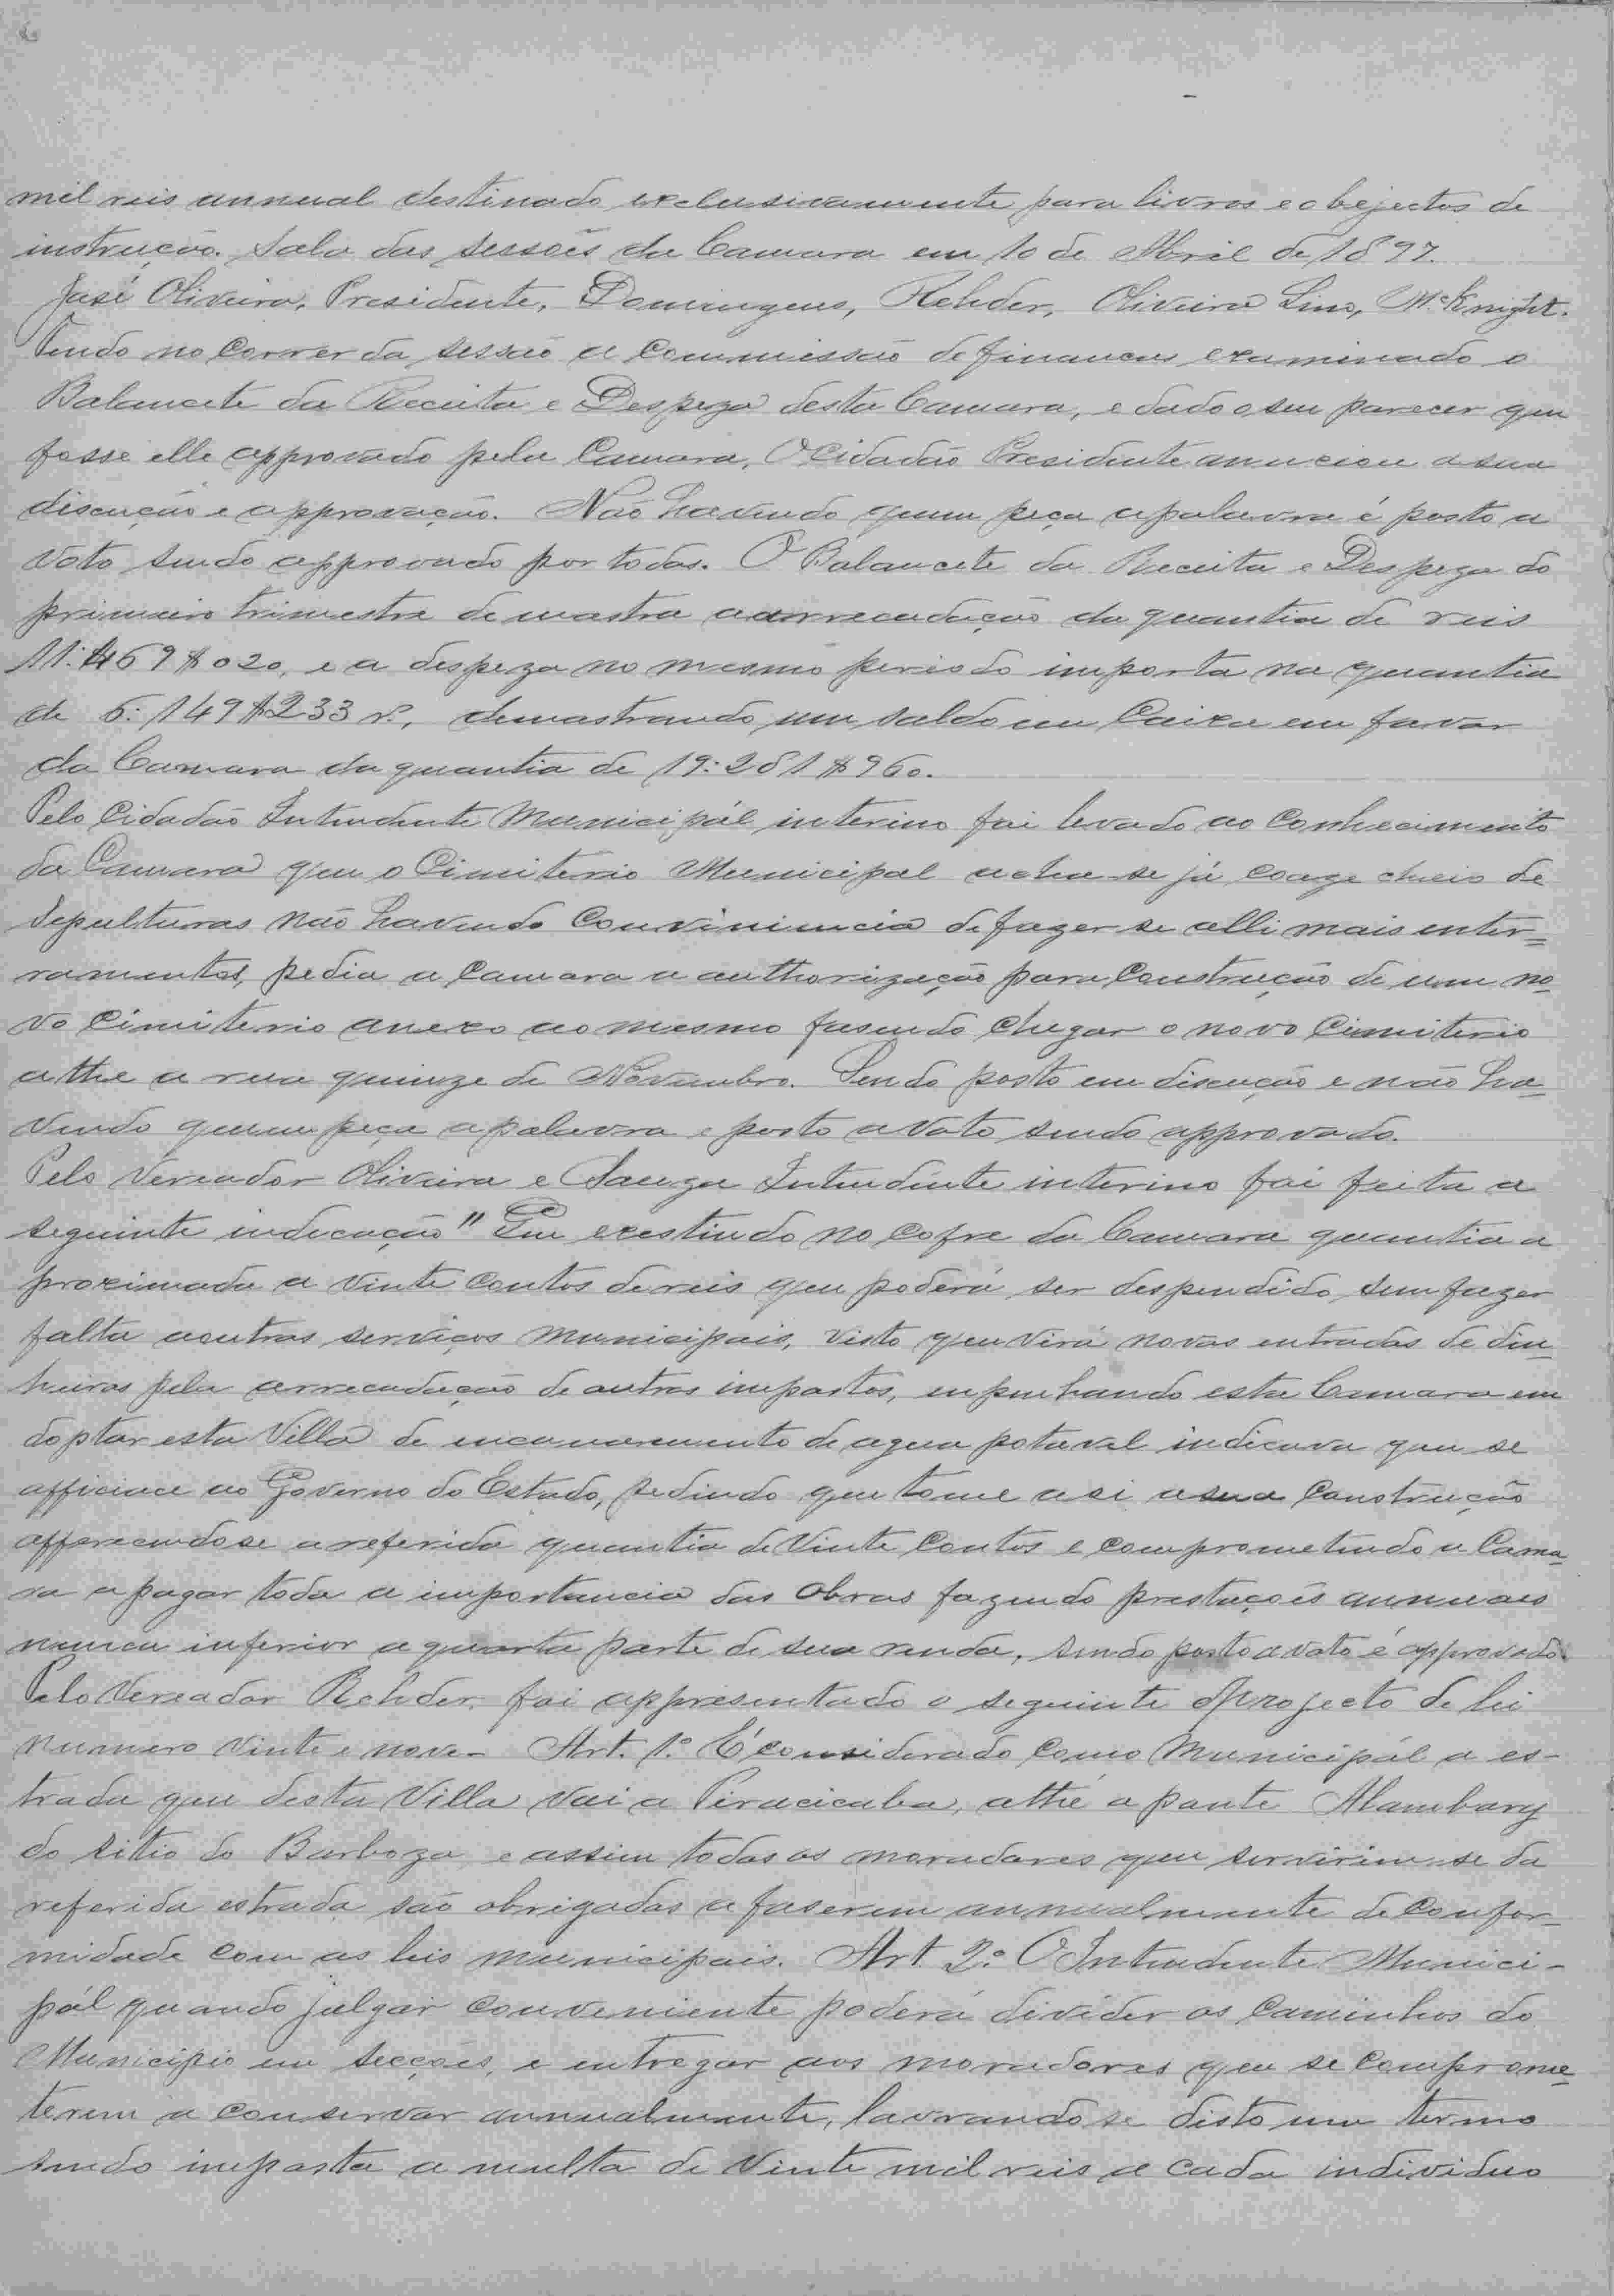 mil reis annual destinado exclusivamente para livros e objectos de
instrução. Sala das sessões da Camara em 10 de Abril de 1897.
José Oliveira, Presidente, Domingues, Rehder, Oliveira Lino, McKnight.
Tendo no correr da sessão a Commissão de finanças examinado o
Balancete da Receita e Despeza desta Camara, e dado o seu parecer que
fosse elle approvado pela Camara, O Cidadão Presidente anunciou a sua
discução e approvação. Não havendo quem peça a palavra é posto a
voto sendo approvado por todos. O Balancete da Receita e Despeza do
primeiro trimestre demostra a arrecadação da quantia de reis
11:469$020, e a despeza no mesmo periodo importa na quantia
de 6:149$233 rs., demostrando um saldo em Caixa em favor
da Camara da quantia de 19:281$960.
Pelo Cidadão Intendente Municipál interino foi levado ao Conhecimento
da Camara que o Cimiterio Municipal acha-se já coaze cheio de
Sepulturas não havendo Conviniencia de fazer-se alli mais inter=
ramentos, pedia a Camara a authorização para Construção de um no-
vo Cimiterio anexo ao mesmo fasendo chegar o novo Cimiterio
athe a rua quinze de Novembro. Sendo posto em discução e não ha-
vendo quem peça a palavra e posto a voto sendo approvado.
Pelo Vereador Oliveira e Souza Intendente interino foi feita a
seguinte indicação " Que existindo no Cofre da Camara quantia a
proximada a vinte Contos de reis que poderá ser despendido sem fazer
falta a outros serviços Municipais, visto que virá novas entradas de din-
heiros pela arrecadação de outros impostos, enpenhando esta Camara em
doptar esta Villa de encanamento de agua potavel indicava que se
officiace ao Governo do Estado, pedindo que tome a si a sua Construção
offerecendose a referida quantia de Vinte Contos e comprometendo a Cama-
ra a pagar toda a importancia das Obras fazendo prestações annuaes
nunca inferior a quarta parte de sua renda, sendo posto a voto é approvado.
Pelo Vereador Rehder, foi appresentado o seguinte projecto de lei
numero vinte e nove- Art. 1º É considerado como Municipál a es-
trada que desta Villa vai a Piracicaba, athé a ponte Alambary
do sitio do Barboza, e assim todos os moradores que servirim-se da
referida estrada são obrigados a faserem annualmente de Confor-
midade com as leis municipais. Art 2º O Intendente Munici-
pál quando julgar conveniente poderá divider os Caminhos do
Municipio em secções, e entregar aos moradores que se Comprome-
terem a conservar annualmente, lavrando-se disto um termo
sendo imposta a multa de Vinte mil reis a cada individuo